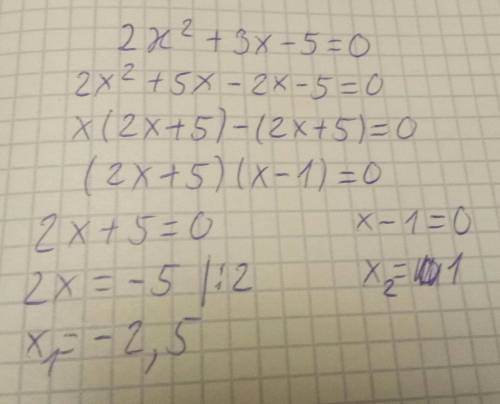 2x² + 3x - 5 = 0
2x² + 5x - 2x - 5 = 0
x(2x+5) - (2x+5) = 0
(2x+5)(x-1) = 0
2x + 5 = 0
2x = -5 |:2
x₁ = -2,5
x - 1 = 0
x₂ = 1